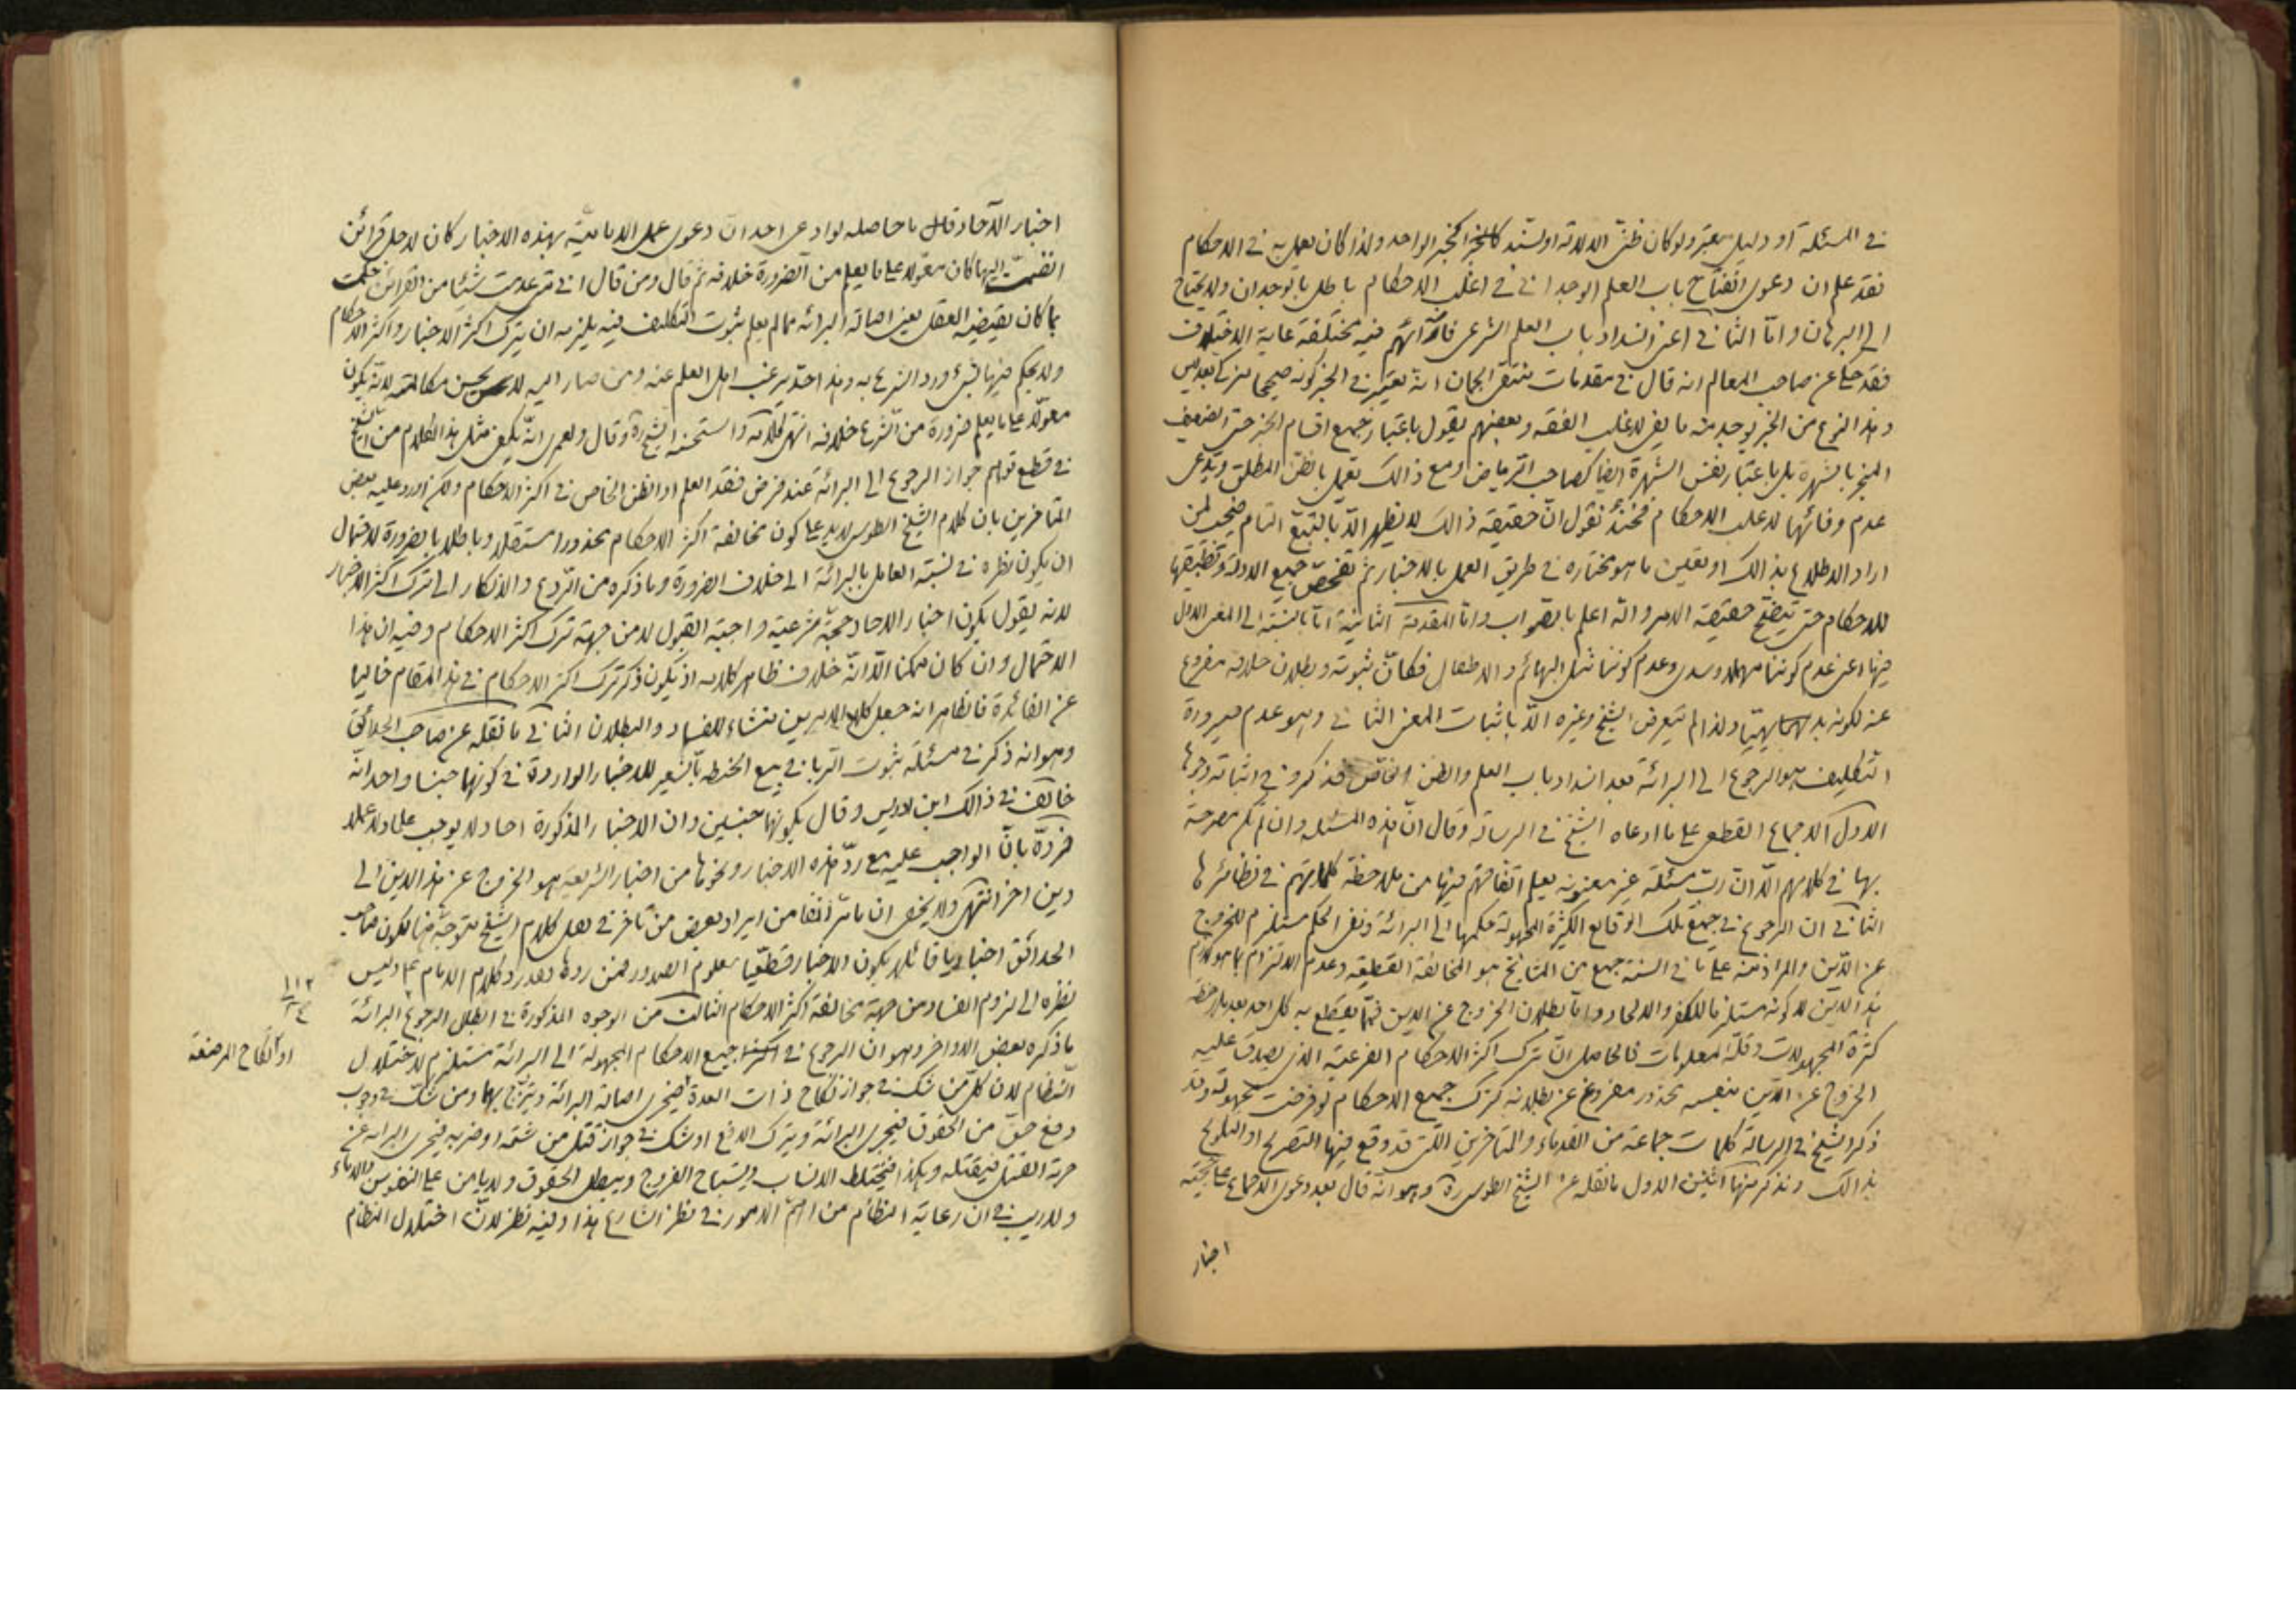 في المسئلة او دليل معتبر ولو كان ظنّى الدلالة او السند كالخبر الواحد ولذا كان يعمل به في الاحكام
فقد علم ان دعوى انفتاح باب العلم الوجداني في اغلب الاحكام باطل بالوجدان ولا يحتاج
الى البرهان وامّا الثاني اعنى انسداد باب العلم الشرعى فارائهم فيه مختلفة غاية الاختلاف
فقد حكى عن صاحب المعالم انه قال في مقدمات منتقى الجمان انه يعتبر في الخبر كونه صحيحا مزكى بعدلين
وهذا النوع من الخبر يوجد منه ما يفى لاغلب الفقه وبعضهم يقول باعتبار جميع اقسام الخبر حتى الضعيف
المنجبر بالشهرة بل باعتبار نفس الشهرة ايضا كصاحب الرياض ومع ذالك يعمل بالظن المطلق ويدّعى
عدم وفائها لاغلب الاحكام فحينئذ نقول انّ حقيقة ذالك لا يظهر الّا بالتتبع التام فيجب لمن
اراد الاطلاع بذالك او تعيين ما هو مختاره في طريق العمل بالاخبار ثم تفحّص جميع الادلة وتطبيقها
للاحكام حتى يتضح حقيقة الامر والله اعلم بالصواب وامّا المقدمة الثانية امّا بالنسبة الى المعنى الاول
منها اعنى عدم كوننا مهملا وسدى وعدم كوننا مثل البهائم والاطفال فكانّ ثبوته وبطلان خلافه مفروغ
عنه لكونه بديهيّا ولذا لم يتعرض الشيخ وغيره الّا باثبات المعنى الثاني وهو عدم صيرورة
التكليف هو الرجوع الى البرائة بعد انسداد باب العلم والظن الخاص فذكروا في اثباته وجوها
الاول الاجماع القطعى على ما ادعاه الشيخ في الرسالة وقال انّ هذه المسئلة وان لم تكن مصرحة
بها في كلامهم الّا انّ ربّ مسئلة غير معنونة يعلم اتفاقهم فيها من ملاحظة كلماتهم في نظائرها
الثاني ان الرجوع في جميع تلك الوقايع الكثيرة المجهولة حكمها الى البرائة ونفى الحكم مستلزم للخروج
عن الدّين والمراد منه على ما في السنة جمع من المشايخ هو المخالفة القطعية وعدم الالتزام بما هو لازم
هذا الدين لا كونه مستلزما للكفر والالحاد وامّا بطلان الخروج عن الدين فممّا يقطع به كل احد بعد ملاحظة
كثرة المجهولات وقلّة المعلومات فالحاصل انّ ترك اكثر الاحكام الفرعية الذى يصدق عليه
الخروج عن الدّين بنفسه محذور مفروغ عن بطلانه كترك جميع الاحكام لو فرضت مجهولة وقد
ذكر الشيخ في الرسالة كلمات جماعة من القدماء والمتاخرين التى قد وقع فيها التصريح او التلويح
بذالك ونذكر منها اثنين الاول ما نقله عن الشيخ الطوسى ره وهو انّه قال بعد دعوى الاجماع على حجّية
اخبار
اخبار الآحاد قال ما حاصله لو ادعى احد انّ دعوى عمل الامامية بهذه الاخبار كان لاجل قرائن
انضمّت اليها كان معوّلا على ما يعلم من الضرورة خلافه ثم قال ومن قال انى متى عدمت شيئا من القرائن حكمت
بما كان يقتضيه العقل يعنى اصالة البرائة مما لم يعلم ثبوت التكليف فيه يلزمه ان يترك اكثر الاخبار واكثر الاحكام
ولا يحكم فيها بشئ ورد الشرع به وهذا حدّ يرغب اهل العلم عنه ومن صار اليه لا يحسن مكالمته لانّه يكون
معوّلا على ما يعلم ضرورة من الشّرع خلافه انتهى كلامه واستحسنه الشيخ ره وقال ولعمرى انّه يكفى مثل هذا الكلام من الشيخ
في قطع توهّم جواز الرجوع الى البرائة عند فرض فقد العلم او الظن الخاص في اكثر الاحكام ولكن اورد عليه بعض
المتاخرين بان كلام الشيخ الطوسى لا يدل على كون مخالفة اكثر الاحكام محذورا مستقلا وباطلا بالضرورة لاحتمال
ان يكون نظره في نسبة العامل بالبرائة الى خلاف الضرورة وما ذكره من الرّدع والانكار الى ترك اكثر الاخبار
لانه يقول بكون اخبار الاحاد حجّة شرعيّة واجبة القبول لا من جهة ترك اكثر الاحكام وفيه ان هذا
الاحتمال وان كان ممكنا الّا انّه خلاف ظاهر كلامه اذ يكون ذكر ترك اكثر الاحكام في هذا المقام خاليا
عن الفائدة فالظاهر انه جعل كلا الامرين منشاء للفساد والبطلان الثاني ما نقله عن صاحب الحدائق
وهو انه ذكر في مسئلة ثبوت الربا في بيع الحنطة بالشّعير للاخبار الواردة في كونهما جنسا واحدا انّه
خالف في ذالك ابن ادريس وقال بكونهما جنسين وان الاخبار المذكورة احاد لا يوجب علما ولا عملا
فردّه بانّ الواجب عليه مع ردّ هذه الاخبار ونحوها من اخبار الشريعة هو الخروج عن هذا الدين الى
دين اخر انتهى ولا يخفى ان ما مرّ انفا من ايراد بعض من تاخر في نقل كلام الشيخ متوجّه هنا لكون صاحب
الحدائق اخباريا قائلا بكون الاخبار قطعيّا معلوم الصدور فمن ردها فقد رد كلام الامام ع وليس
نظره الى لزوم الفساد من جهة مخالفة اكثر الاحكام الثالث من الوجوه المذكورة في ابطال الرجوع البرائة
ما ذكره بعض الاواخر وهو ان الرجوع في جميع الاحكام المجهولة الى البرائة مستلزم لاختلال
النّظام لان كلّ من شك في جواز نكاح ذات العدة فيجرى اصالة البرائة ويتزوّج بها ومن شكّ في وجوب
دفع حقّ من الحقوق فيجرى البرائة ويترك الدفع او شك في جواز قتل من شتمه او ضربه فيجرى البرائة عن
حرمة القتل فيقتله وهكذا فيختلط الانساب ويستباح الفروج ويبطل الحقوق ولا يامن على النفوس والدماء
ولا ريب في ان رعاية النظام من اهمّ الامور في نظر الشارع هذا وفيه نظر لانّ اختلال النظام
١١٢
٢٤
او نكاح المرضعة